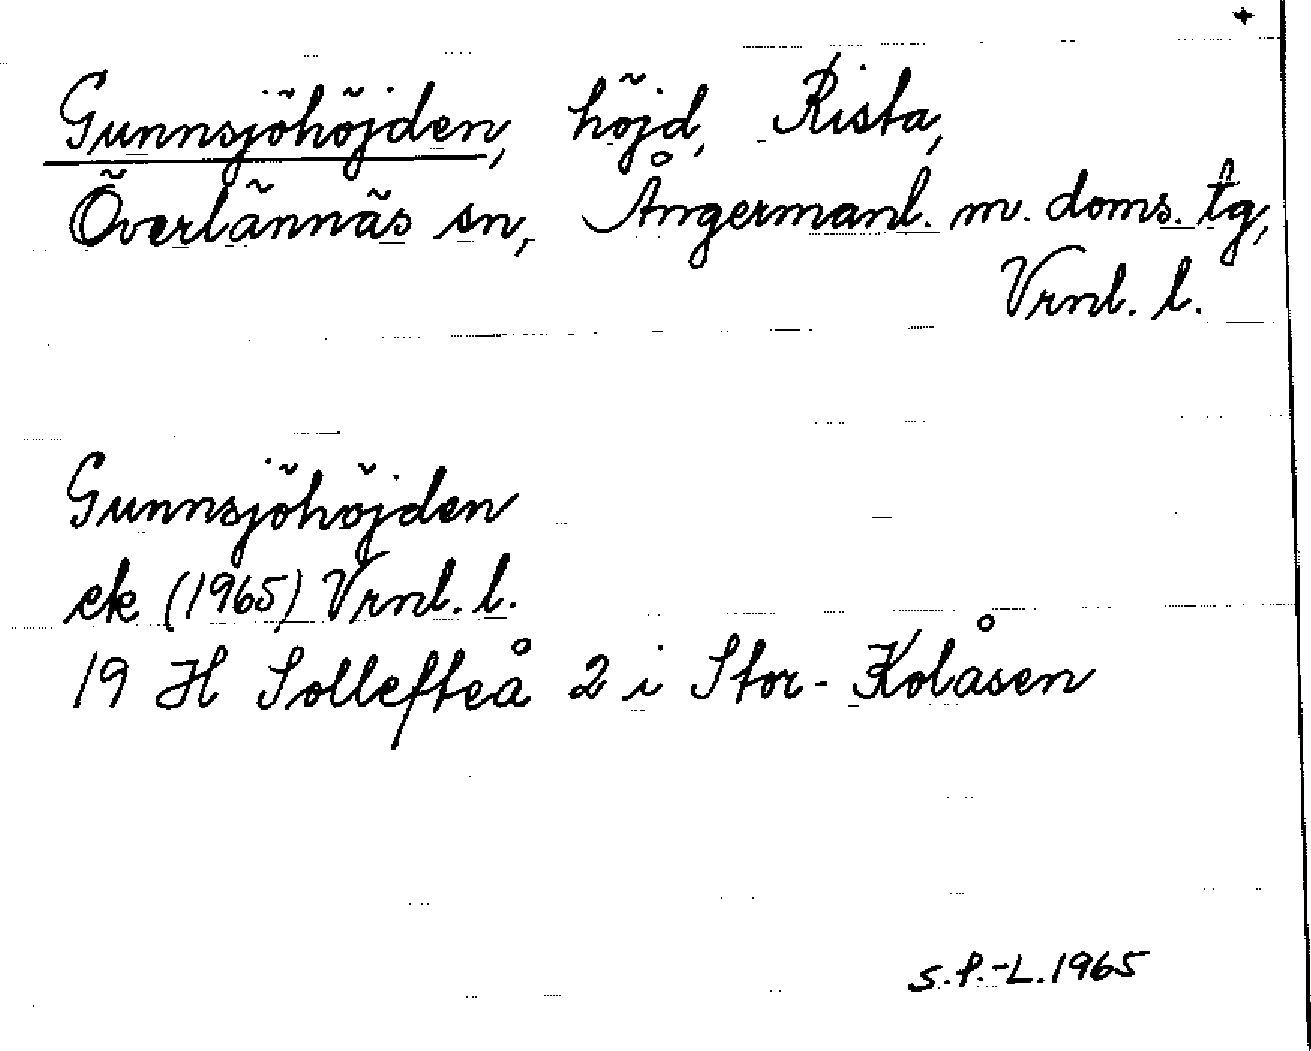 Gunnsjöhöjden, höjd, Rista,
Överlännäs sn, Ångermanl. m. doms. tg,
Vrnl. l.
Gunnsjöhöjden
ek (1965) Vrnl. l.
19 H Sollefteå 2 i Stor-Kolåsen
S.P.-L. 1965